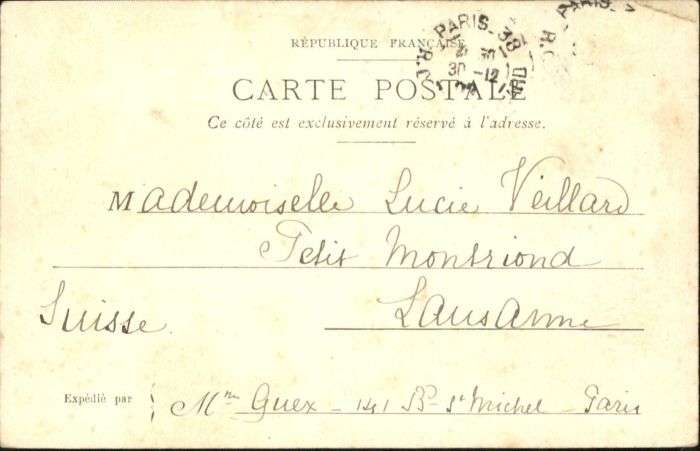 RÉPUBLIQUE FRANÇAISE
PARIS-38
30-12
PARIS
CARTE POSTALE
Ce côté est exclusivement réservé à l'adresse.
Mademoiselle Lucie Veillard
Petit Montriond
Lausanne
Suisse
Expédié par Mme Guex - 141 Bd St Michel - Paris